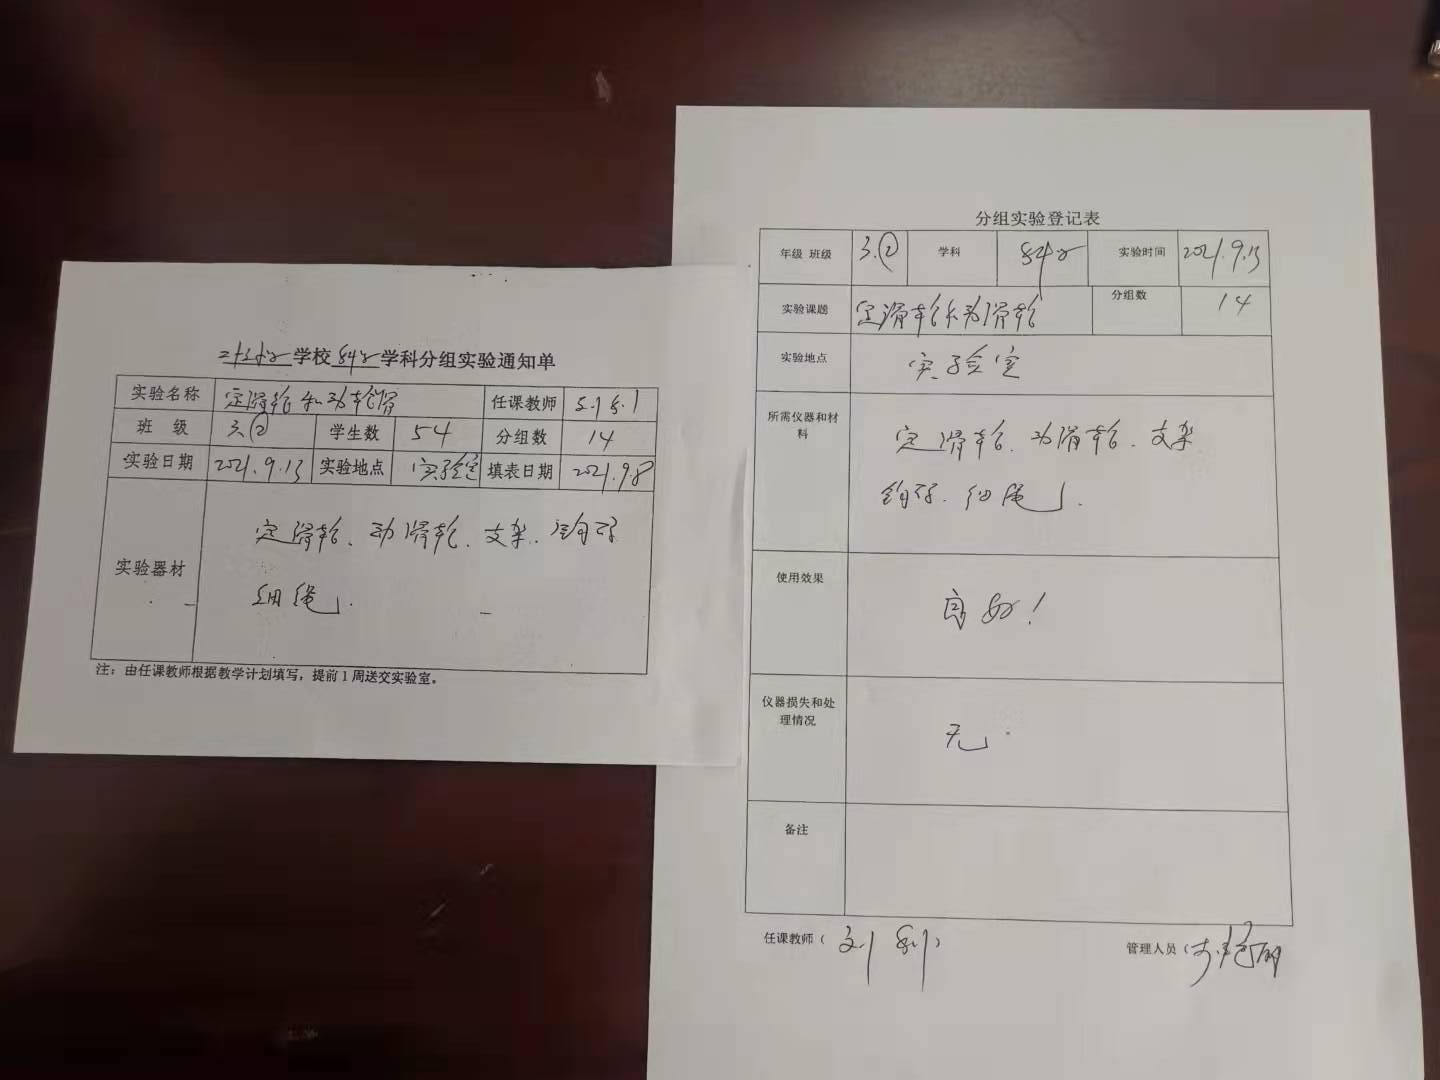 学校 科学 学科分组实验通知单
实验名称 定滑轮和动轮滑 任课教师
班 级 三② 学生数 54 分组数 14
实验日期 2021.9.13 实验地点 实验室 填表日期 2021.9.8
实验器材 定滑轮、动滑轮、支架、钩码
细绳.
注：由任课教师根据教学计划填写，提前1周送交实验室。
分组实验登记表
年级 班级 三.② 学科 科学 实验时间 2021.9.13
实验课题 定滑轮和动滑轮 分组数 14
实验地点 实验室
所需仪器和材料 定滑轮、动滑轮、支架
钩码、细绳.
使用效果 良好！
仪器损失和处理情况 无.
备注
任课教师（ ）
管理人员（